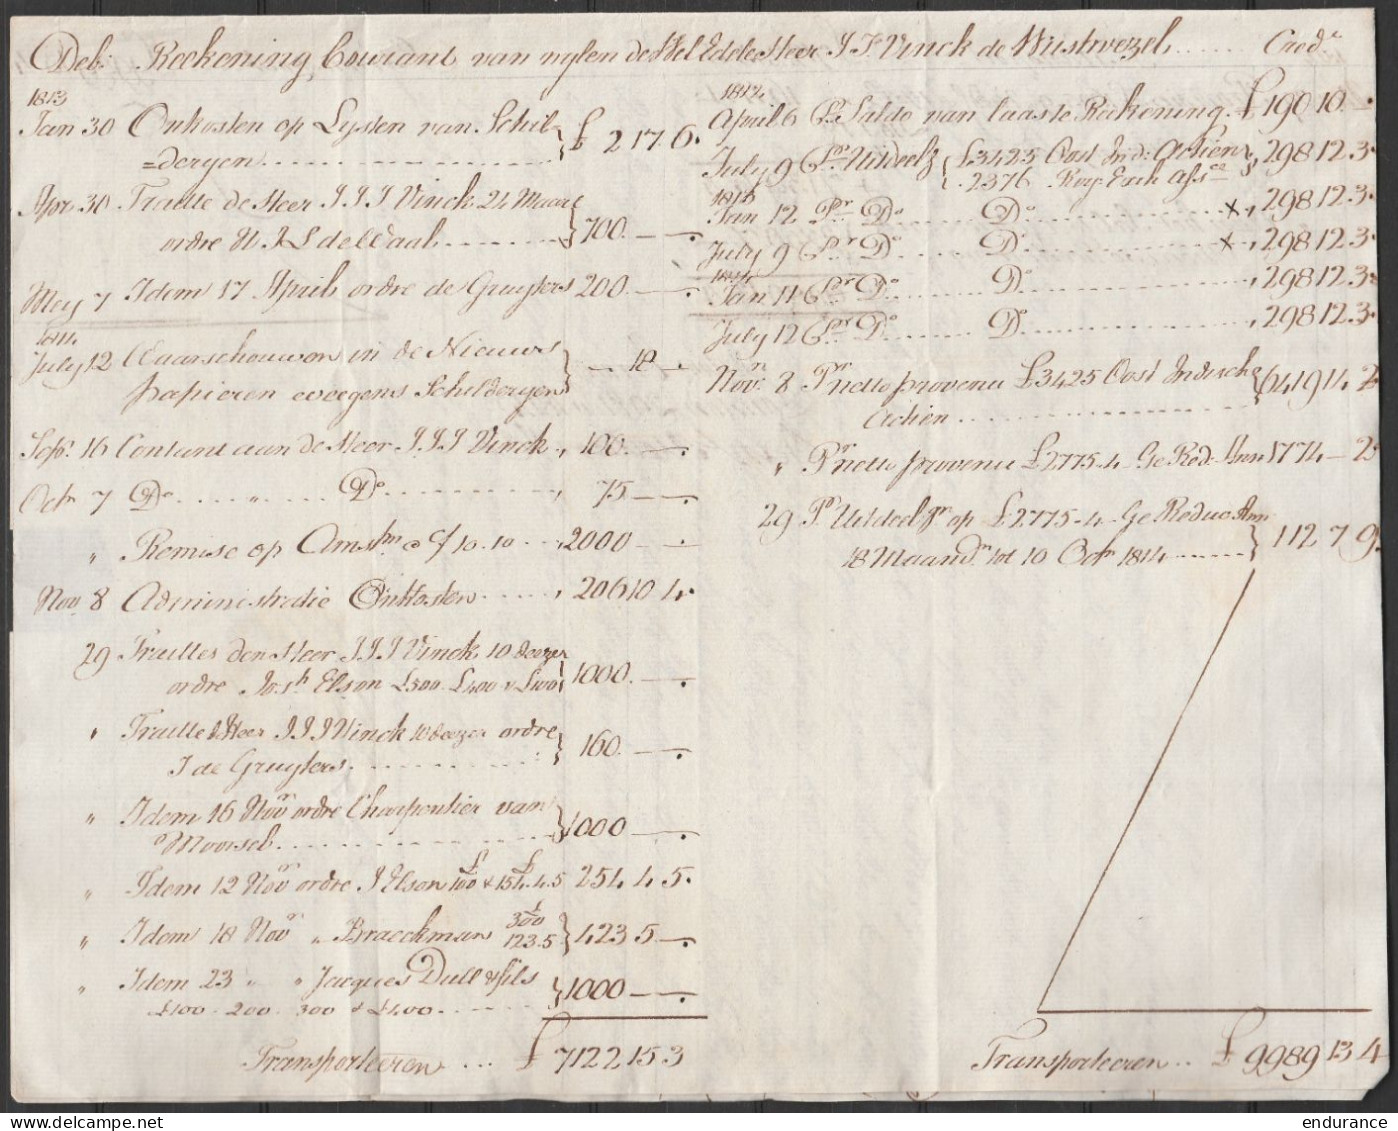 Deb: Rekening Courant van wylen de Wel Edele Heer J F Vinck de Wustwezel ...... Cred.r
1813
Jan 30 Onkosten op Lysten van Schil-
=deryen .......... £ 217.6.
Apr. 30 Traitte de Heer J J J Vinck 24 Maart
ordre H. J S de Waal ........ 700. — .
Mey 7 Idem 17 April ordre de Gruyters 200 — .
1814
July 12 Waarschouwen in de Nieuws
papieren weegens Schilderyen — 18 — .
Sepr. 16 Contant aan de Heer J. J. J Vinck , 100. — .
Octr 7 Do ...... " ..... Do .......... , 75 — .
" Remise op Amstm a C/ 10.10 .. , 2000 — .
Nov. 8 Administratie Onkosten ...... , 206 10 4.
29 Traittes den Heer J J J Vinck 10 deezer
ordre Jos.h Elson £500. £400 & £100 1000. — .
" Traitte d Heer J J J Vinck 10 deezer ordre
J de Gruyters ............ 160. — .
" Idem 16 Novr ordre Charpentier van
Moorsel .......... 1000 — .
" Idem 12 Novr ordre J Elson £100 & £154.4.5 254 4 5.
" Idem 18 Novr " Braeckman £300 123.5 423 5 — .
" Idem 23 " " Jacques Dull & fils
£100 . 200 . 300 & £400. ........ 1000 — .
Transporteeren ... £ 7122 15 3
1812
April 6 Pr Saldo van laaste Rekening. £ 190 10 — .
July 9 6 Pr Uitdeelg £3425 Oost Ind: Actien
. 2376 Roy. Exch Assce , 298 12.3.
1813
Jan 12 Pr Do ........ Do .......... x , 298 12.3.
July 9 6 Pr Do ........ Do .......... x , 298 12.3.
1814
Jan 11 6 Pr Do ........ Do .......... , 298 12.3.
July 12 6 Pr Do ........ Do .......... , 298 12.3.
Novr. 8 Pr netto provenu £3425 Oost Indische
Actien .......... 6419 14 2
" Pr netto provenu £2775-4 Ge Red: Ann 1774 — 2
29 Pr Uitdeelgr op £2775-4 Ge Reduc Ann
18 Maandn tot 10 Octr 1814 ........ 112 7 9.
Transporteeren .. £ 9989 13 4
endurance